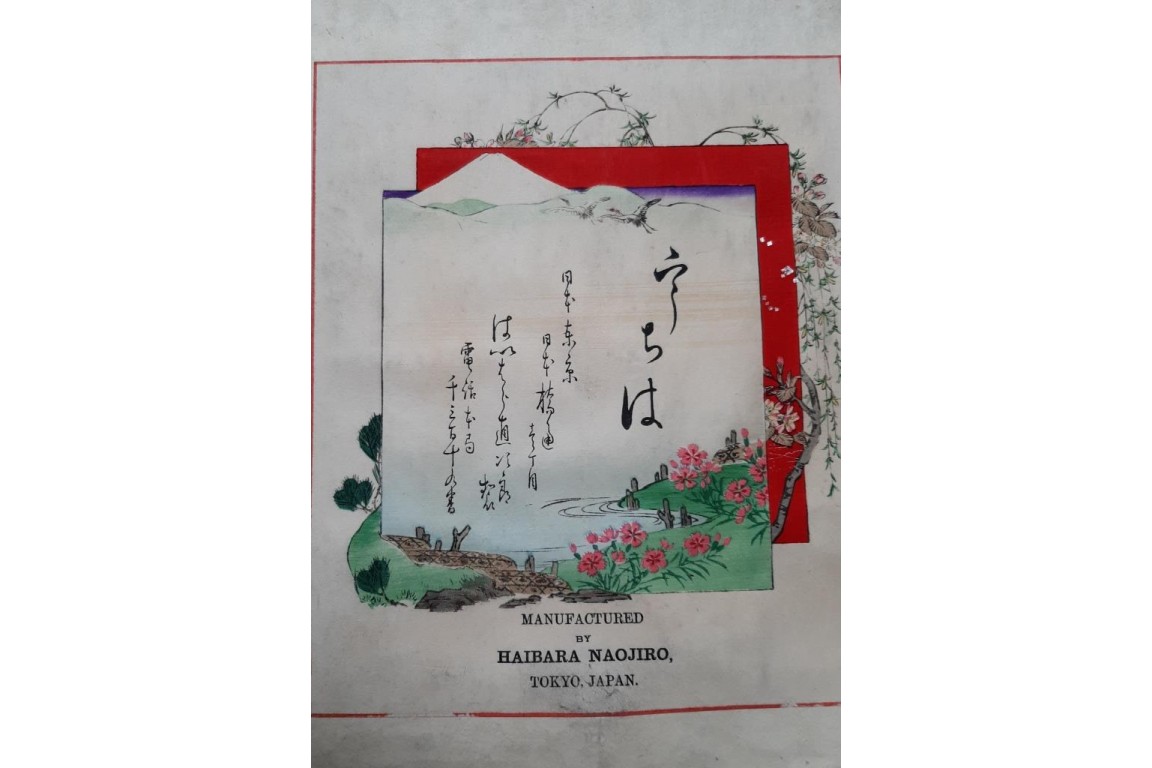 うちは
日本東京
日本橋通壱丁目
はいはら直次郎製
電話本局
千三百十九番
MANUFACTURED
BY
HAIBARA NAOJIRO,
TOKYO, JAPAN.